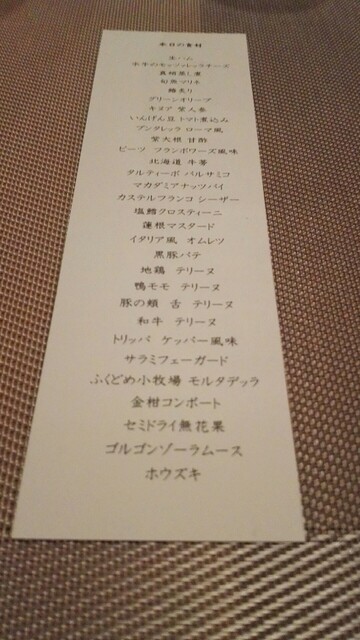 本日の食材
生ハム
水牛のモッツァレラチーズ
真蛸蒸し煮
旬魚マリネ
鰆炙り
グリーンオリーブ
キヌア 紫人参
いんげん豆 トマト煮込み
プンタレッラ ローマ風
紫大根 甘酢
ビーツ フランボワーズ風味
北海道 牛蒡
タルティーボ バルサミコ
マカダミアナッツパイ
カステルフランコ シーザー
塩鱈クロスティーニ
蓮根マスタード
イタリア風 オムレツ
黒豚パテ
地鶏 テリーヌ
鴨モモ テリーヌ
豚の頬 舌 テリーヌ
和牛 テリーヌ
トリッパ ケッパー風味
サラミフェーガード
ふくどめ小牧場 モルタデッラ
金柑コンポート
セミドライ無花果
ゴルゴンゾーラムース
ホウズキ